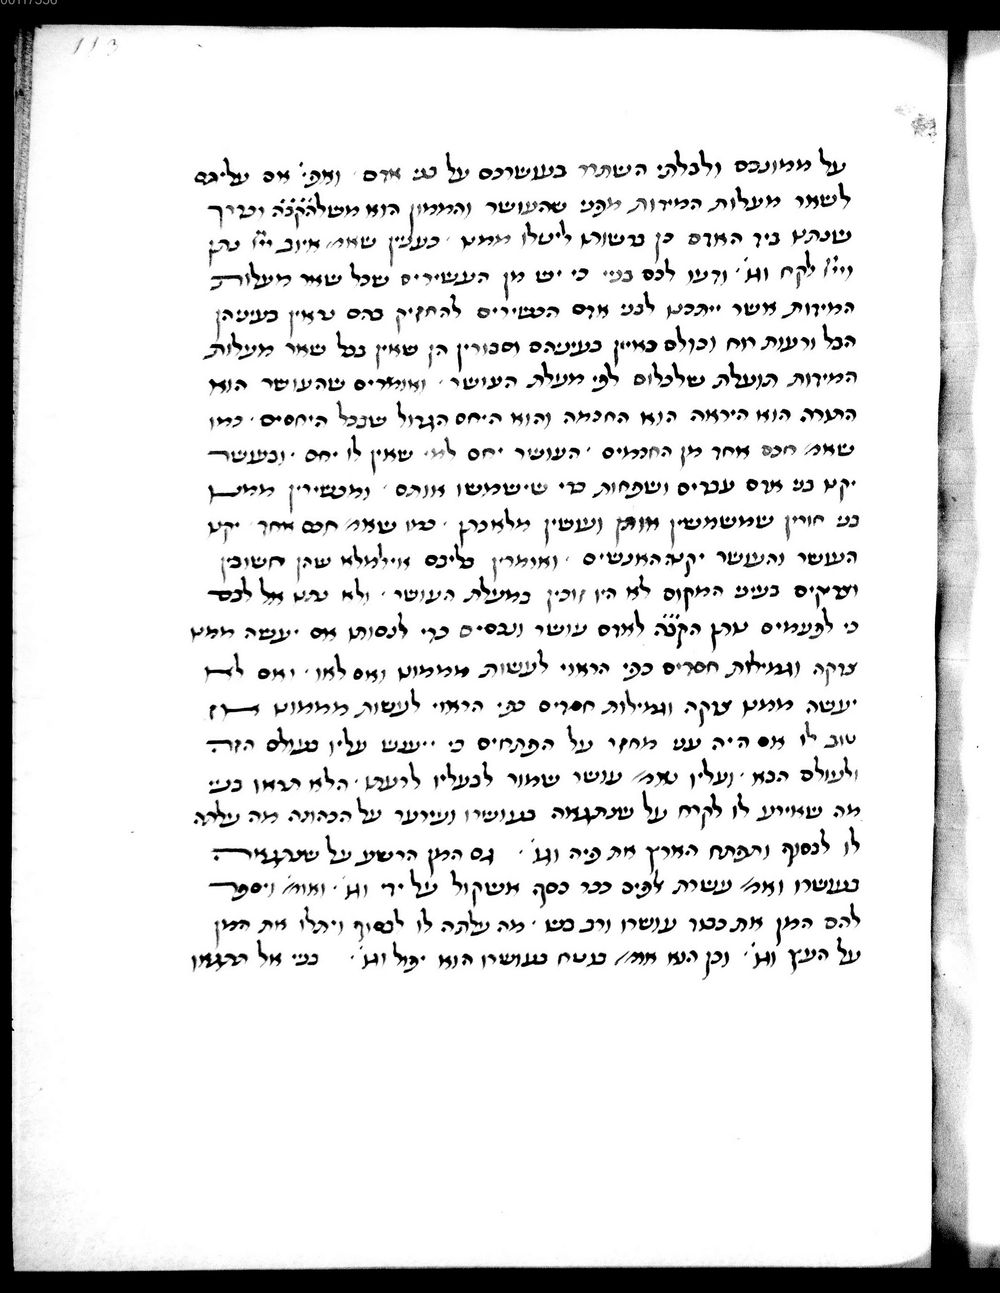 113
על ממונכם ולבלתי השתרר בעושרכם על בני אדם ׳ ואפי׳ אם עליתם
לשאר מעלות המידות מפני שהעושר והממון הוא משלהקב״ה וכדרך
שנתנו ביד האדם כן ברשותו ליטלו ממנו ׳ כעניין שאמ׳ איוב ייי נתן
וייי לקח וגו׳ ׳ ודעו לכם בניי כי יש מן העשירים שכל שאר מעלות
המידות אשר ייתכנו לבני אדם הכשירים להחזיק בהם נראין בעיניהן
הבל ורעות רוח וכולם כאיין בעיניהם וסבורין הן שאין בכל שאר מעלות
המידות תועלת שלכלום לפי מעלת העושר ׳ ואומרים שהעושר הוא
התורה הוא היראה הוא החכמה והוא היחס הגדול שבכל היחסים ׳ כמו
שאמ׳ חכם אחד מן החכמים ׳ העושר יחס למי שאין לו יחס ׳ ובעושר
יקנו בני אדם עבדים ושפחות כדי שישמשו אותם ׳ ומכשירין ממנו
בני חורין שמשמשין אותן ועושין מלאכתן ׳ כמו שאמ׳ חכם אחד ׳ יקנו
העושר והעושר יקנה האנשים ׳ ואומרין בליבם אוילמלא שהן חשובין
וצדיקים בעיני המקום לא היו זוכין במעלת העושר ׳ ולא נתנו אל לבם
כי לפעמים נותן הקב״ה לאדם עושר ונכסים כדי לנסותו אם יעשה ממנו
צדקה וגמילות חסדים כפי הראוי לעשות מממונו ואם לאו ׳ ואם לא
יעשה ממנו צדקה וגמילות חסדים כפי הראוי לעשות מממונו אז
טוב לו אם היה עני מחזר על הפתחים כי ייענש עליו בעולם הזה
ולעולם הבא ׳ ועליו נאמ׳ עושר שמור לבעליו לרעתו ׳ הלא תראו בניי
מה שאירע לו לקרח על שנתגאה בעושרו ועירער על הכהונה מה עלתה
לו לבסוף ותפתח הארץ את פיה וגו׳ ׳ גם המן הרשע על שנתגאה
בעושרו ואמ׳ עשרת אלפים ככר כסף אשקול על ידי וגו׳ ׳ ואומ׳ ויספר
להם המן את כבוד עושרו ורב בניו ׳ מה עלתה לו לבסוף ויתלו את המן
על העץ וגו׳ ׳ וכן הוא אומ׳ בוטח בעושרו הוא יפול וגו׳ ׳ בניי אל תתגאו